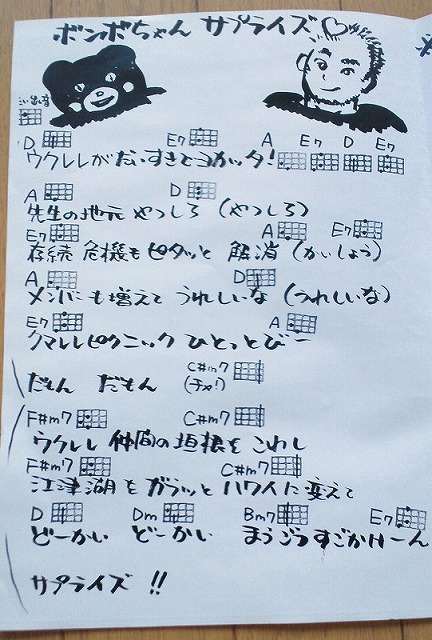 ボンボちゃん サプライズ♡
D E7 A E7 D E7
ウクレレがだいすきとヨカッタ!
A D
先生の地元 やつしろ (やつしろ)
E7 A E7
存続 危機も ピタッと 解消 (かいしょう)
A D
メンバーも増えて うれしいな (うれしいな)
E7 A
クマレレピクニック ひとっとびー
C#m7
だもん だもん (チャ!)
F#m7 C#m7
ウクレレ 仲間の垣根を こわし
F#m7 C#m7
江津湖を ガラッと ハワイに変えて
D Dm Bm7 E7
どーかい どーかい まうごつすごかけーん
サプライズ !!